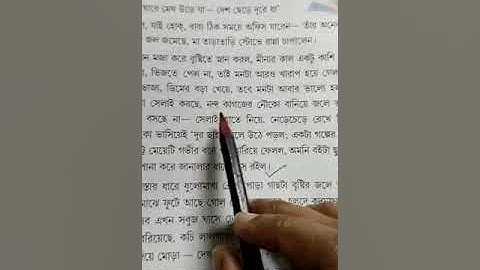 ঘারে মেঘ উড়ে যা— দেশ ছেড়ে দূরে যা"
যাই হোক্, বাবা ঠিক সময়ে অফিস যাবেন— তাঁর অনে
জল জমেছে, মা তাড়াতাড়ি স্টোভে রান্না চাপালেন।
মজা করে বৃষ্টিতে স্নান করল, মীনার কাল একটু কাশি
ভিজতে পেল না, তাই মনটা আরও খারাপ হয়ে গেল
ডিমের বড়া খেয়ে, তবে মনটা আবার ভালো হ
সেলাই করছে, নন্দ কাগজের নৌকো বানিয়ে জলে
বসছে না— সেলাই হাতে নিয়ে, নেড়েচেড়ে রেখে
ভাসিয়েই 'দূর ছাই' বলে উঠে পড়ল, একটা গল্পের
মেয়েটি গভীর বনে হারিয়ে ফেলল, অমনি বইটা ছু
পানা করে জানালার রইল।
স্তার ধারে ধুলোমাখা পাড়া গাছটা বৃষ্টির জলে
মাঝে ফুটে আছে গোল
ব এখন সবুজ ঘাসে
রিয়েছে, কচি
দিয়ে মোড়া—